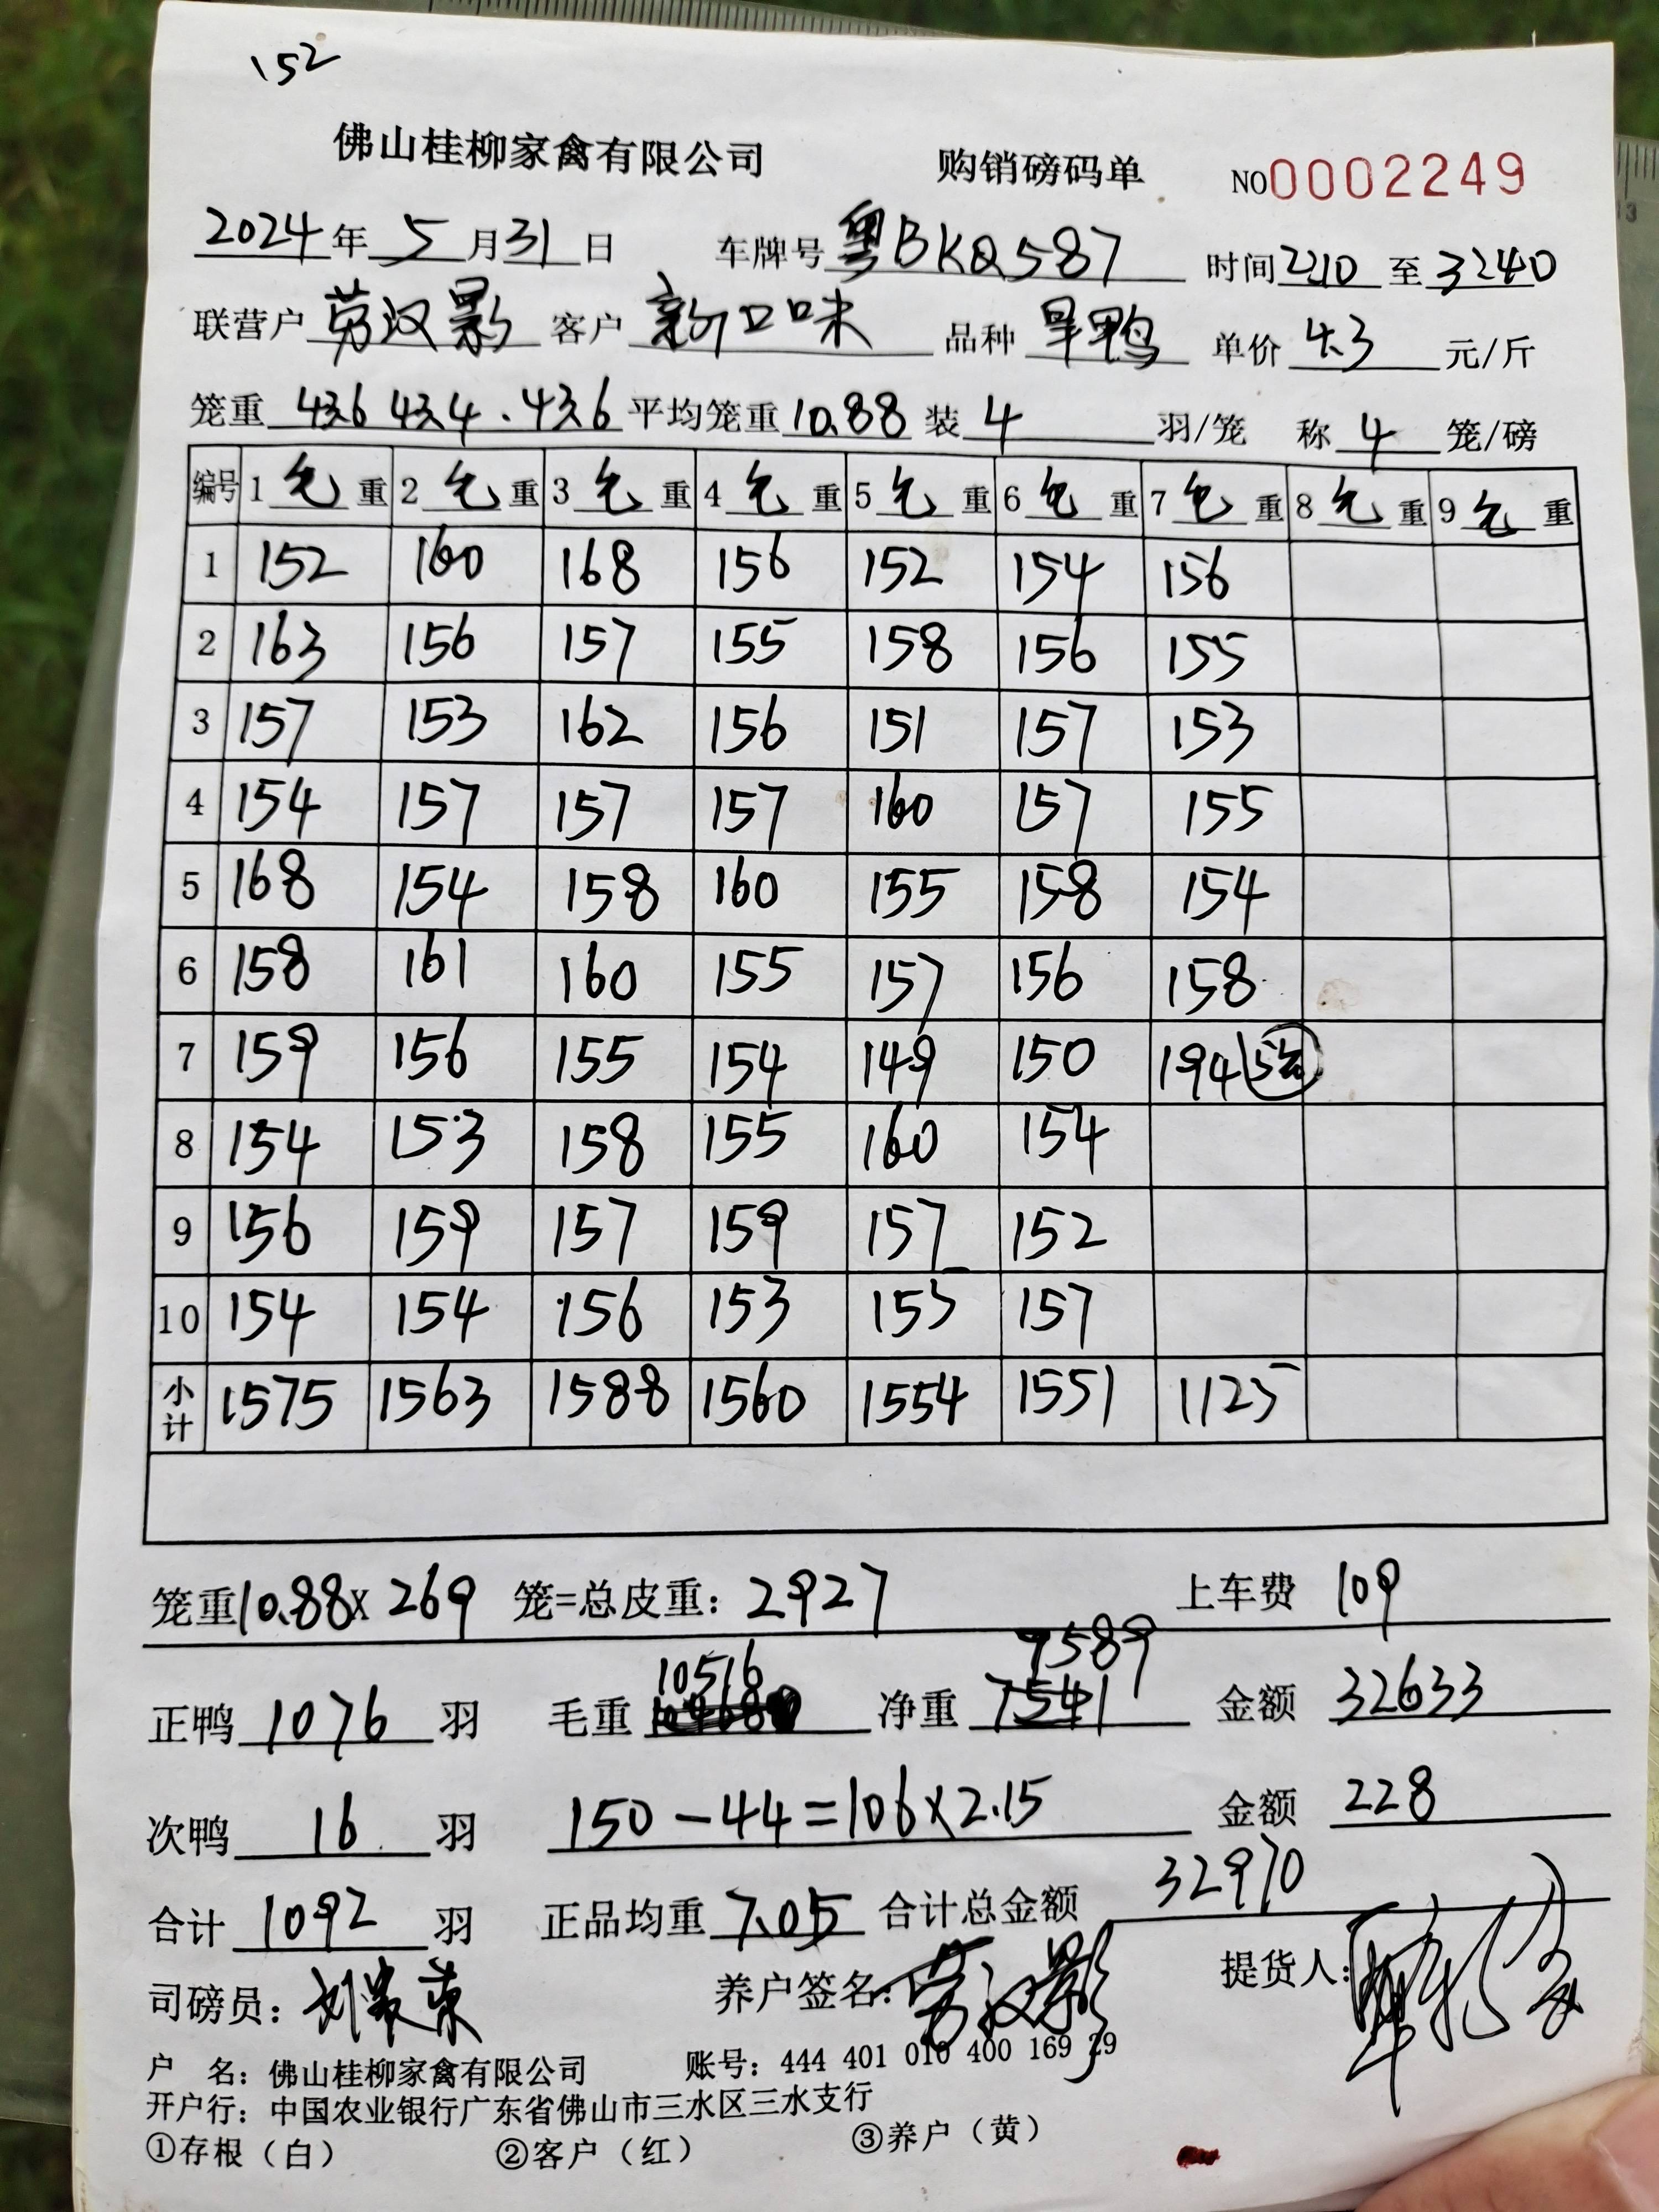 152
佛山桂柳家禽有限公司 购销磅码单 NO0002249
2024年5月31日 车牌号粤BKQ587 时间2210至3240
联营户劳汉影 客户新口味 品种旱鸭 单价4.3元/斤
笼重436 434.436平均笼重10.88装4羽/笼 称4笼/磅
编号 1毛重 2毛重 3毛重 4毛重 5毛重 6毛重 7毛重 8毛重 9毛重
1 152 160 168 156 152 154 156
2 163 156 157 155 158 156 155
3 157 153 162 156 151 157 153
4 154 157 157 157 160 157 155
5 168 154 158 160 155 158 154
6 158 161 160 155 157 156 158
7 159 156 155 154 149 150 194
8 154 153 158 155 160 154
9 156 159 157 159 157 152
10 154 154 156 153 155 157
小计 1575 1563 1588 1560 1554 1551 1125
笼重10.88X 269 笼=总皮重：2927 上车费 109
10516 7589
正鸭1076羽 毛重 净重7541 金额32633
次鸭16羽 150-44=106×2.15 金额228
合计1092羽 正品均重7.05 合计总金额32970
司磅员： 养户签名：劳汉影 提货人：
户 名：佛山桂柳家禽有限公司 账号：444 401 010 400 169 29
开户行：中国农业银行广东省佛山市三水区三水支行
①存根（白） ②客户（红） ③养户（黄）